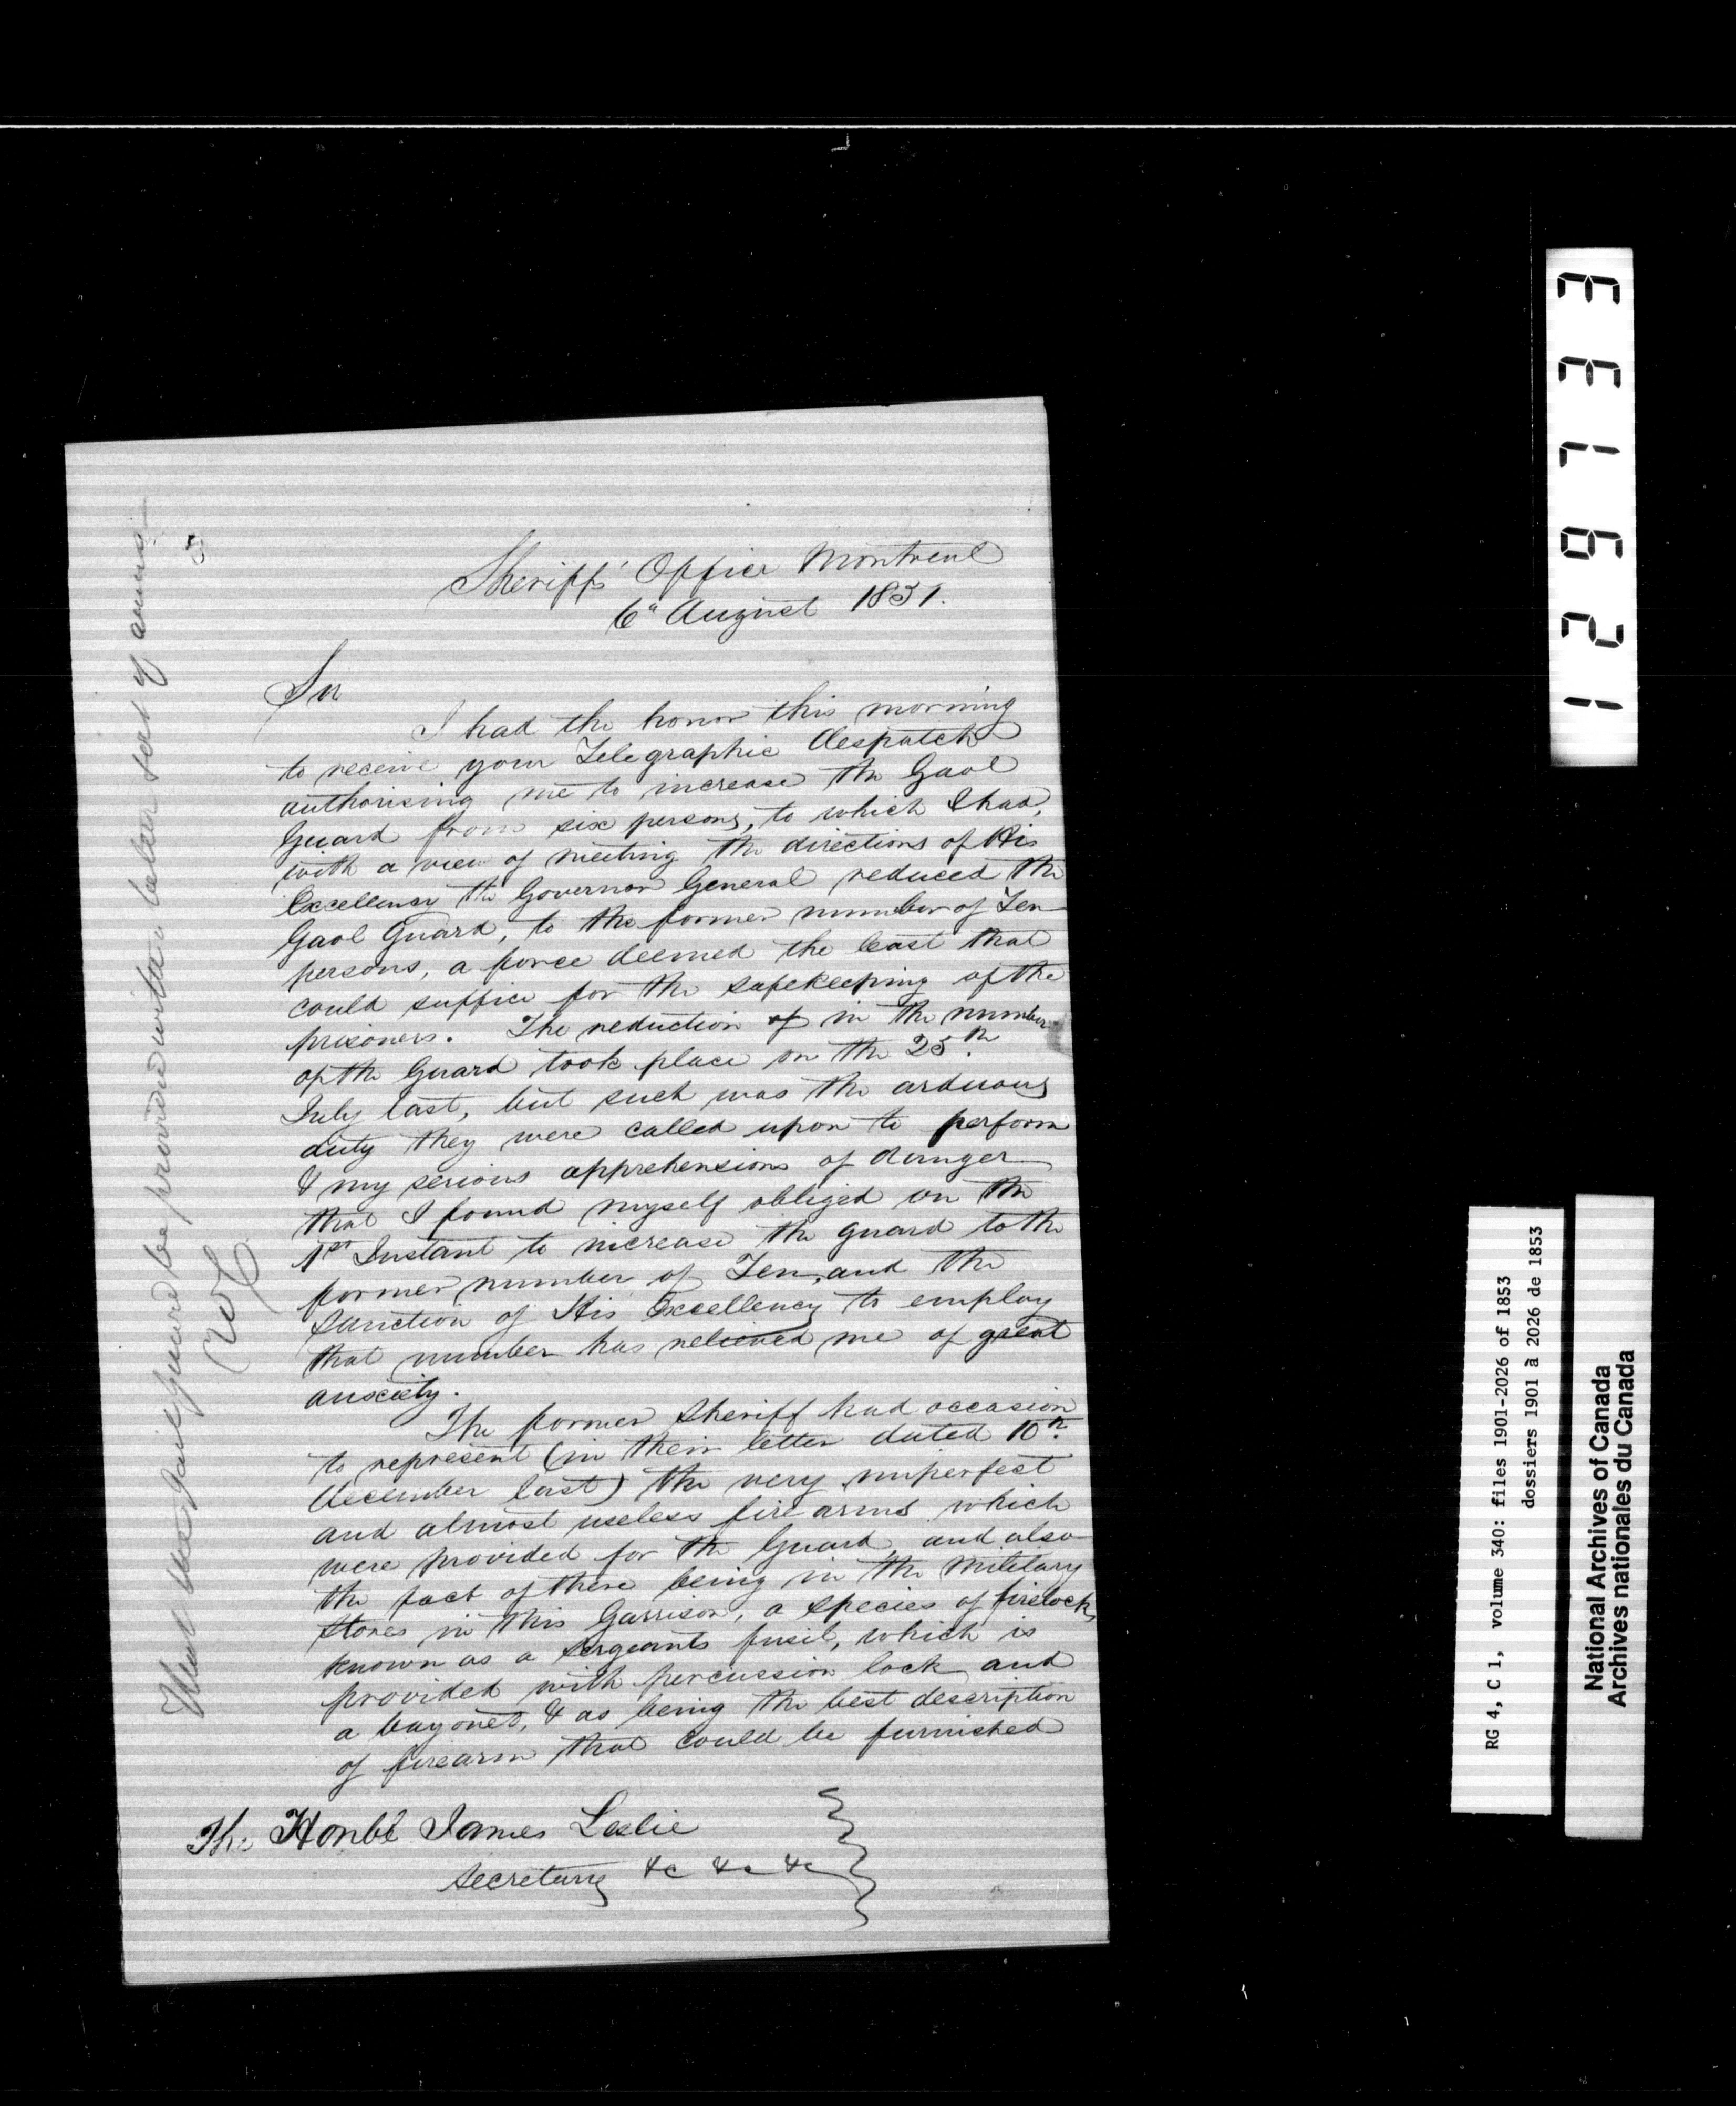 Sheriffs' Office Montreal
6" August 1851.
Sir
I had the honor this morning
to receive your Telegraphic despatch
authorising me to increase the Gaol
Guard from six persons, to which I had,
with a view of meeting the directions of His
Excellency the Governor General reduced the
Gaol Guard, to the former number of Ten
persons, a force deemed the least that
could suffice for the safekeeping of the
prisoners. The reduction of in the number
of the Guard took place on the 25th
July last, but such was the arduous
duty they were called upon to perform
& my serious apprehensions of danger
that I found myself obliged on the
1st Instant to increase the guard to the
former number of Ten, and the
sanction of His Excellency to employ
that number has relieved me of great
anxiety.
The former Sheriff had occasion
to represent (in their letter dated 10th
December last) the very imperfect
and almost useless fire arms which
were provided for the Guard, and also
the fact of there being in the Military
Stores in this Garrison, a species of firelock,
known as a Sergeants fusil, which is
provided with percussion lock and
a bayonet, & as being the best description
of firearm that could be furnished
The Honble James Leslie
Secretary &c &c &c
That the Jail Guard be provided with a better sort of arms—
129733
RG 4, C 1, volume 340: files 1901-2026 of 1853
dossiers 1901 à 2026 de 1853
National Archives of Canada
Archives nationales du Canada